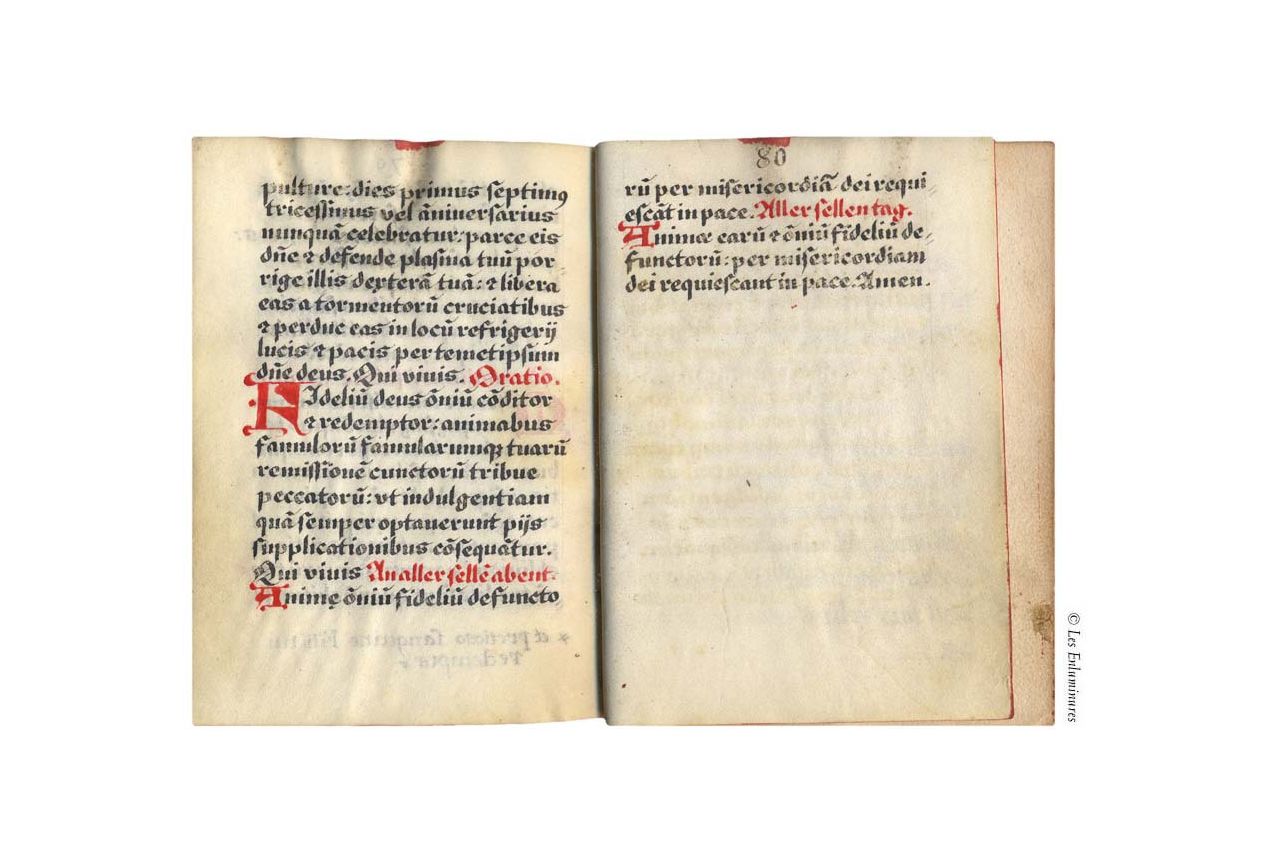 pulture: dies primus septimꝰ
tricessimus vel āniversarius
nunquā celebratur: parce eis
dn̄e & defende plasma tuū por
rige illis dexterā tuā: & libera
eas a tormentorū cruciatibus
& perduc eas in locū refrigerij
lucis & pacis per temetipsum
dn̄e deus. Qui vivis. Oratio.
FIdeliū deus ōniū cōditor
& redemptor: animabus
famulorū famularumqꝫ tuarū
remissionē cunctorū tribue
peccatorū: vt indulgentiam
quā semper optaverunt pijs
supplicationibus cōsequātur.
Qui vivis An aller sellē abent.
Animę ōniū fideliū defuncto
80
rū per misericordiā dei requi-
escāt in pace. Aller sellen tag.
Animæ earū & ōniū fideliū de-
functorū: per misericordiam
dei requiescant in pace. Amen.
© Les Enluminures